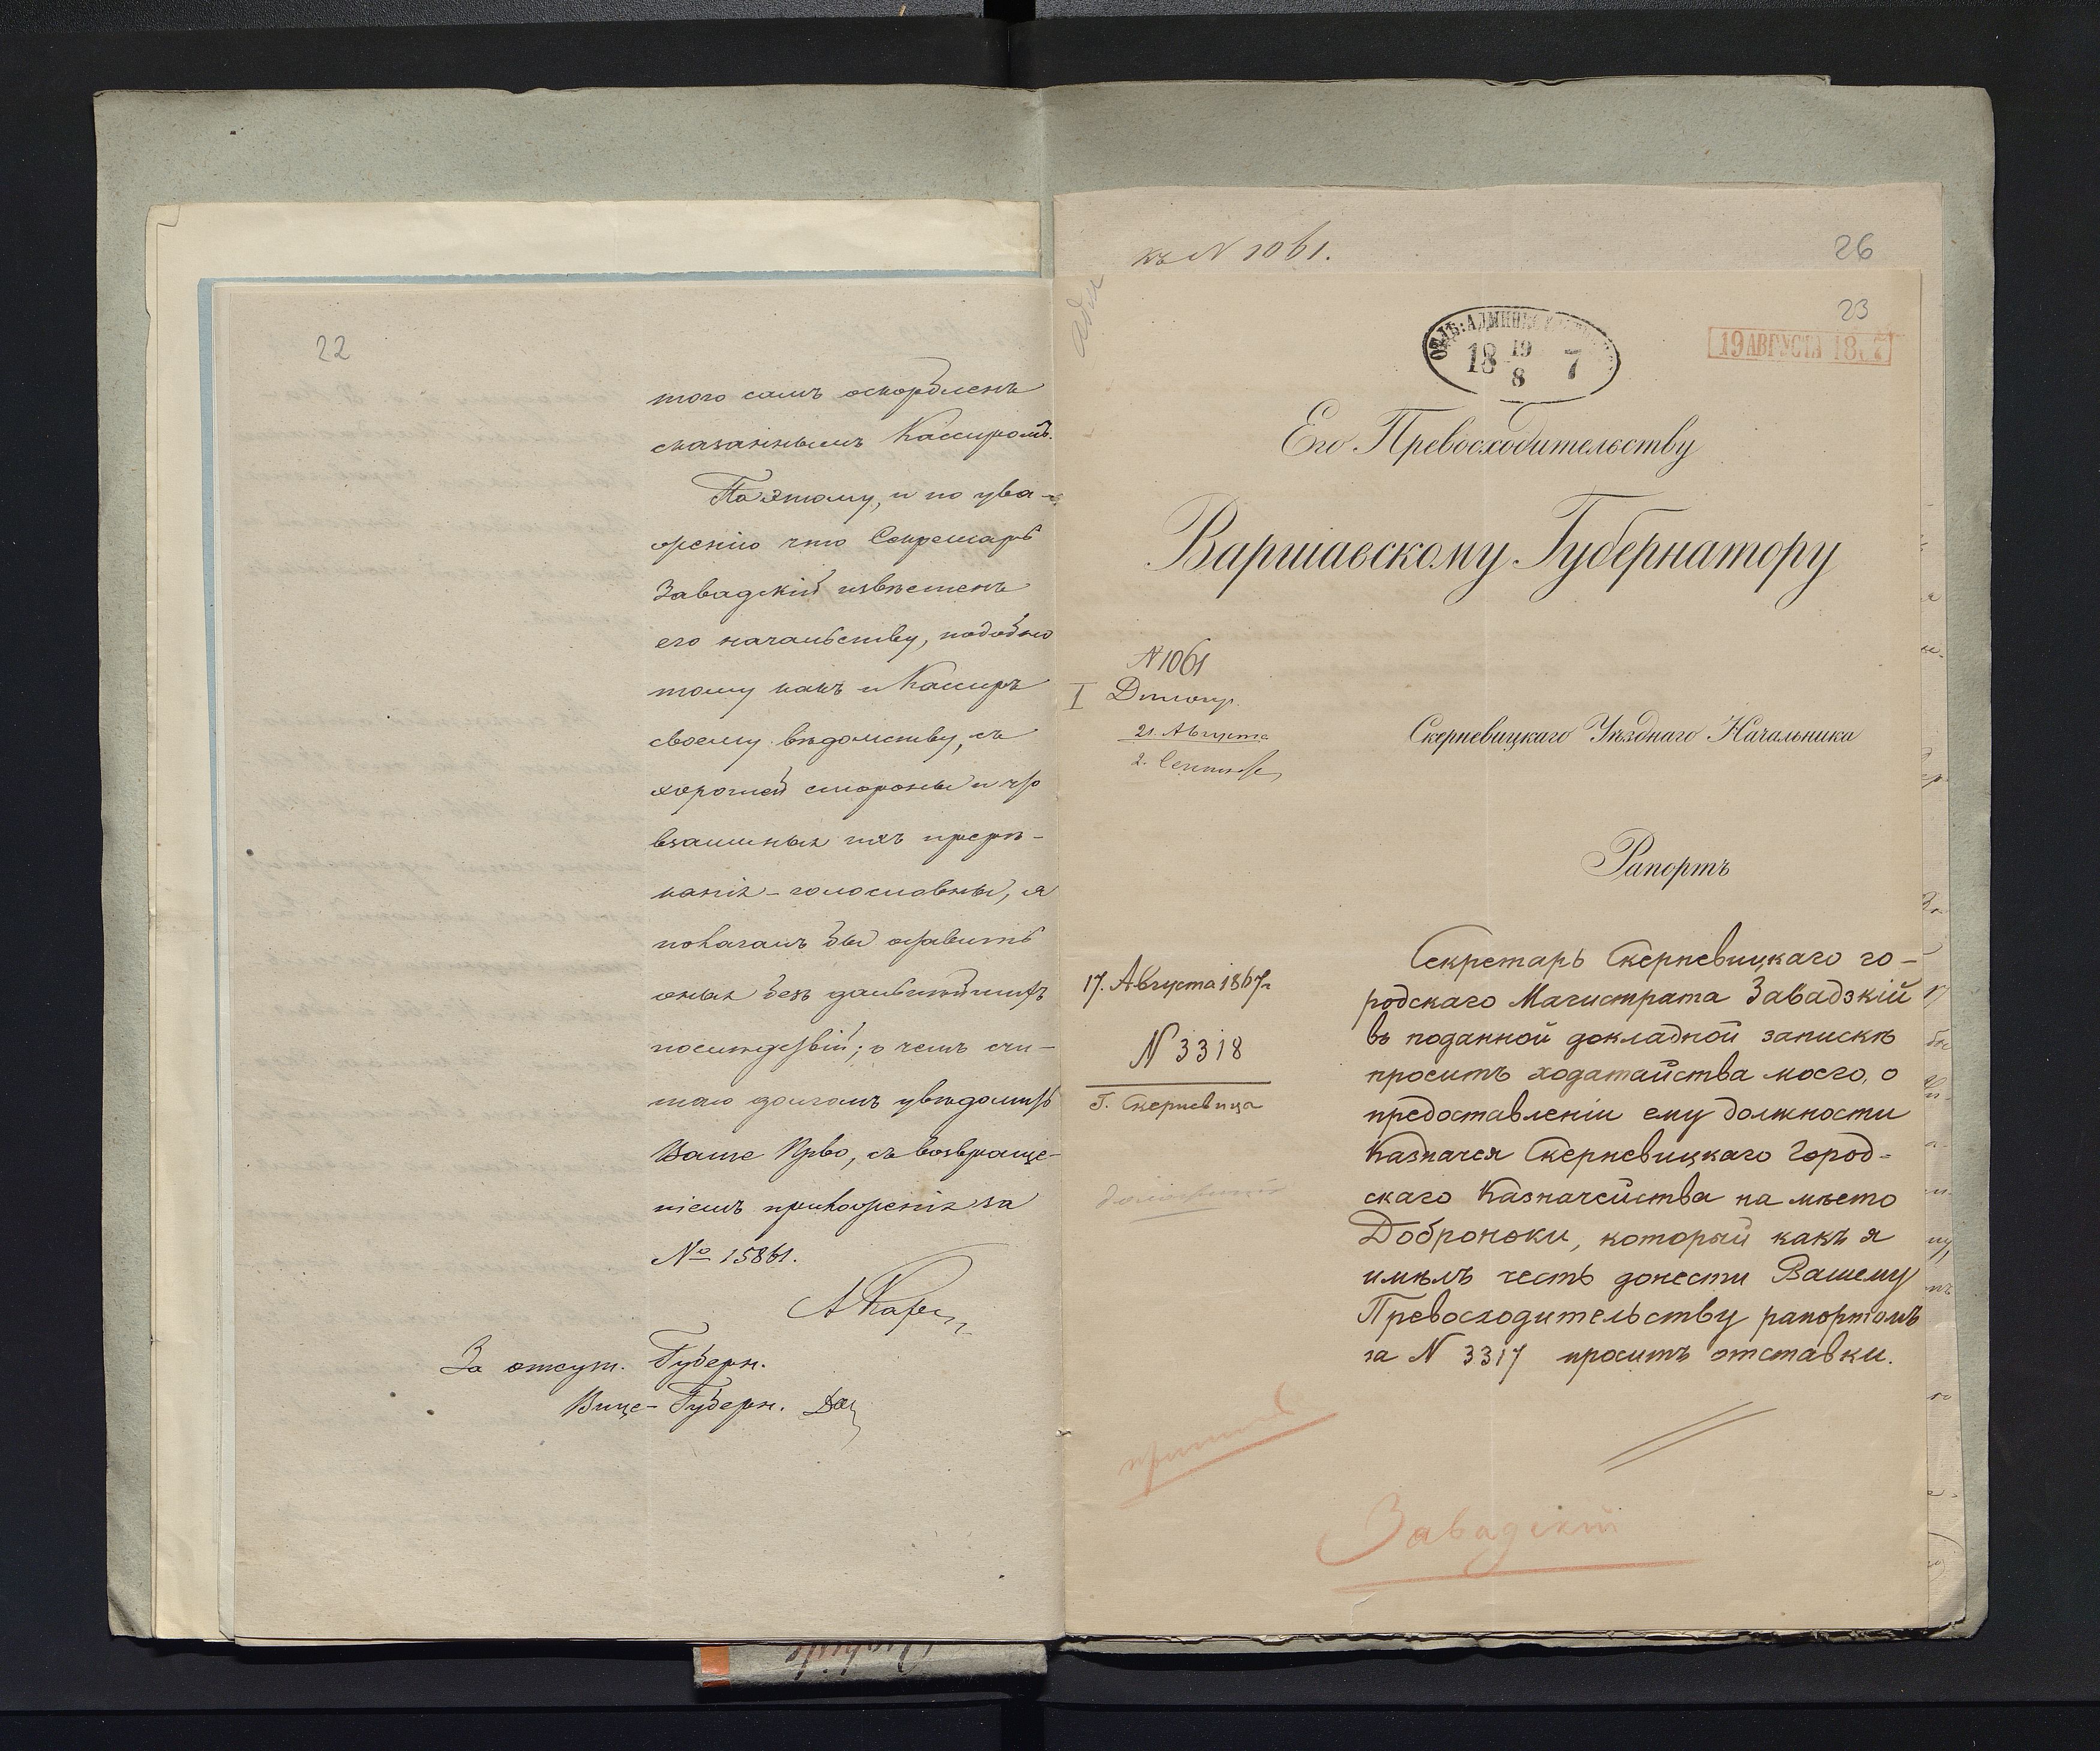 22
того самъ оскорбленъ
сказаннымъ Кассиромъ.
Поэтому, и по ува-
женію что Секретарь
Завадскій извѣстенъ
его начальству, подобно
тому какъ и Кассиръ
своему вѣдомству, съ
хорошей стороны и что
взаимныя ихъ прерѣ-
канія - голословны, я
полагалъ бы оставить
оныя безъ дальнѣйшихъ
послѣдствій; о чемъ счи-
таю долгомъ увѣдомить
Ваше Прво, съ возвраще-
ніемъ приложенія за
№ 15861.
За отсут. Губерн.
Вице-Губерн.
къ N 1061.
26
23
18 19/8 7
19 АВГУСТА 1867
Его Превосходительству
Варшавскому Губернатору
N 1061
I
21 Августа
2. Сентября
Скерневицкаго Уѣзднаго Начальника
Рапортъ
17. Августа 1867 г
N 3318
Г. Скерневица
Секретарь Скерневицкаго го-
родскаго Магистрата Завадзкій
въ поданной докладной запискѣ
проситъ ходатайства моего, о
предоставленіи ему должности
Казначея Скерневицкаго Город-
скаго Казначейства на мѣсто
Доброноки, который какъ я
имѣлъ честь донести Вашему
Превосходительству рапортомъ
за N 3317 проситъ отставки.
Завадскій